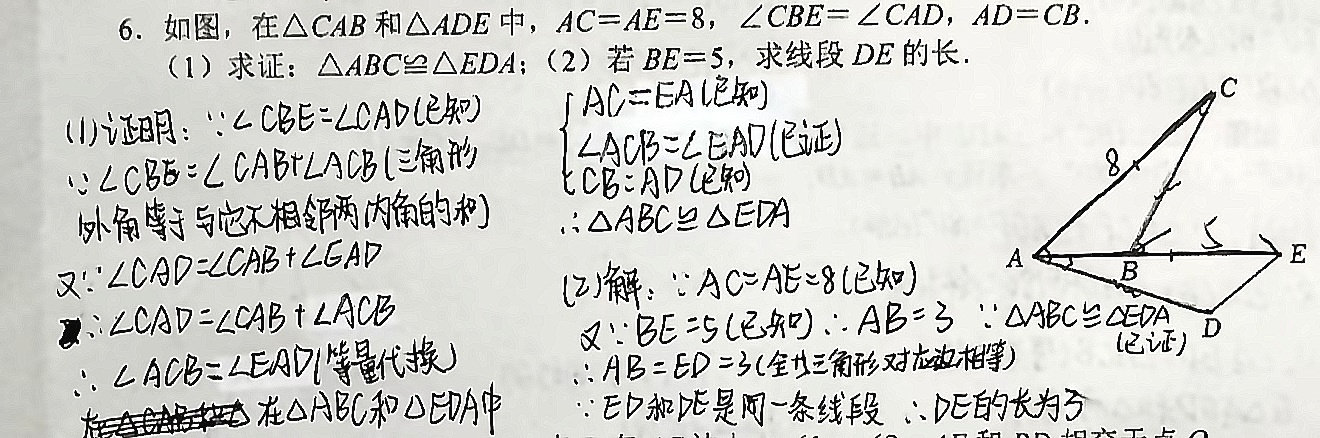 6. 如图，在△CAB和△ADE中，AC=AE=8，∠CBE=∠CAD，AD=CB.
（1）求证：△ABC≌△EDA；（2）若BE=5，求线段DE的长.
(1)证明：∵∠CBE=∠CAD(已知)
∵∠CBE=∠CAB+∠ACB(三角形
外角等于与它不相邻两内角的和)
又∵∠CAD=∠CAB+∠EAD
∴∠CAD=∠CAB+∠ACB
∴∠ACB=∠EAD(等量代换)
在△ABC和△EDA中
{AC=EA(已知)
∠ACB=∠EAD(已证)
CB=AD(已知)
∴△ABC≌△EDA
(2)解：∵AC=AE=8(已知)
又∵BE=5(已知)∴AB=3 ∵△ABC≌△EDA
(已证)
∴AB=ED=3(全等三角形对应边相等)
∵ED和DE是同一条线段 ∴DE的长为3
C
8
5
A
B
E
D